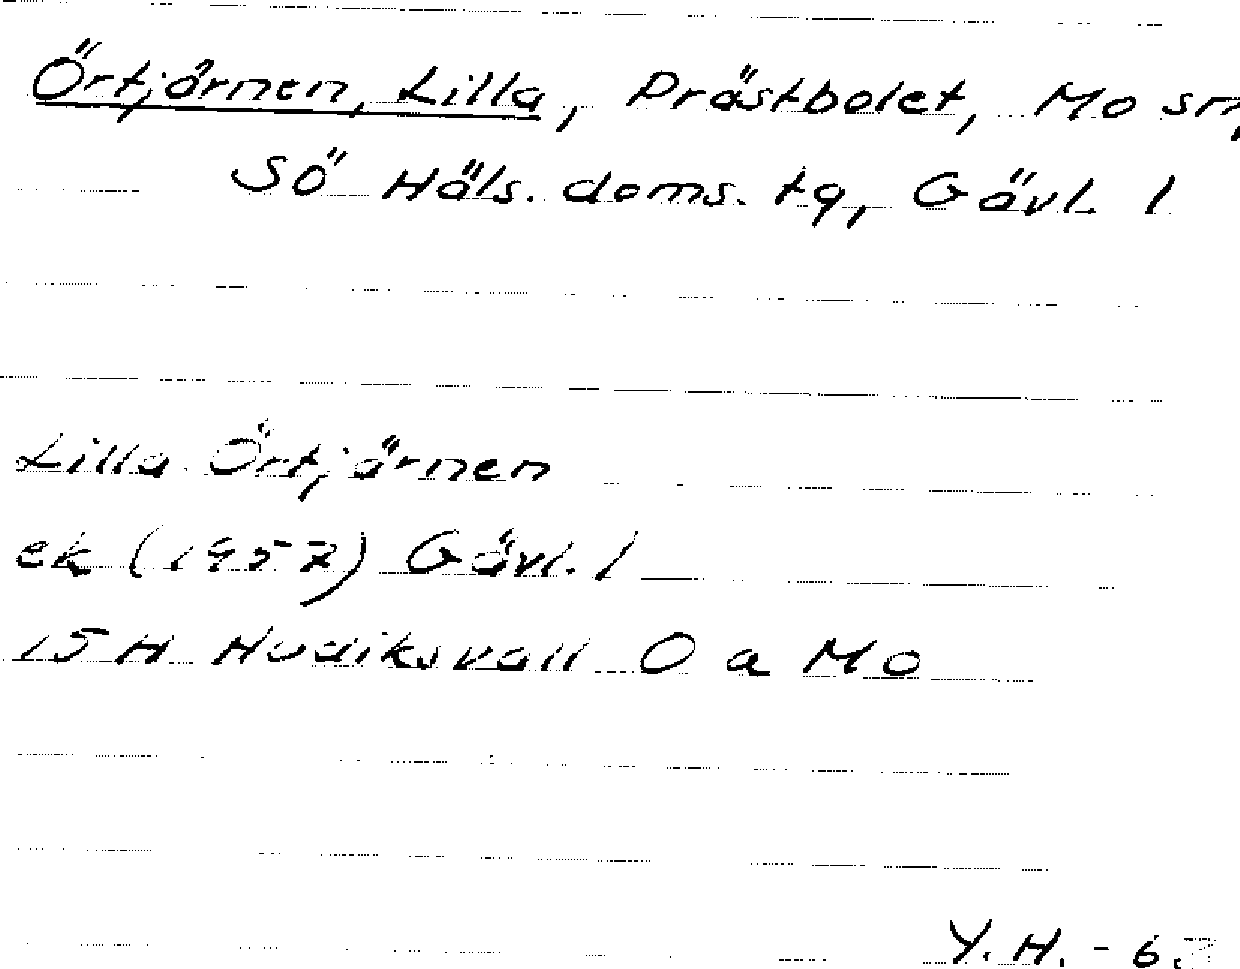 Örtjärnen, Lilla, Prästbolet, Mo sn,
Sö Häls. doms. tg, Gävl. l
Lilla Örtjärnen
ek (1957) Gävl. l
15H Hudiksvall O a Mo
Y.H. - 6